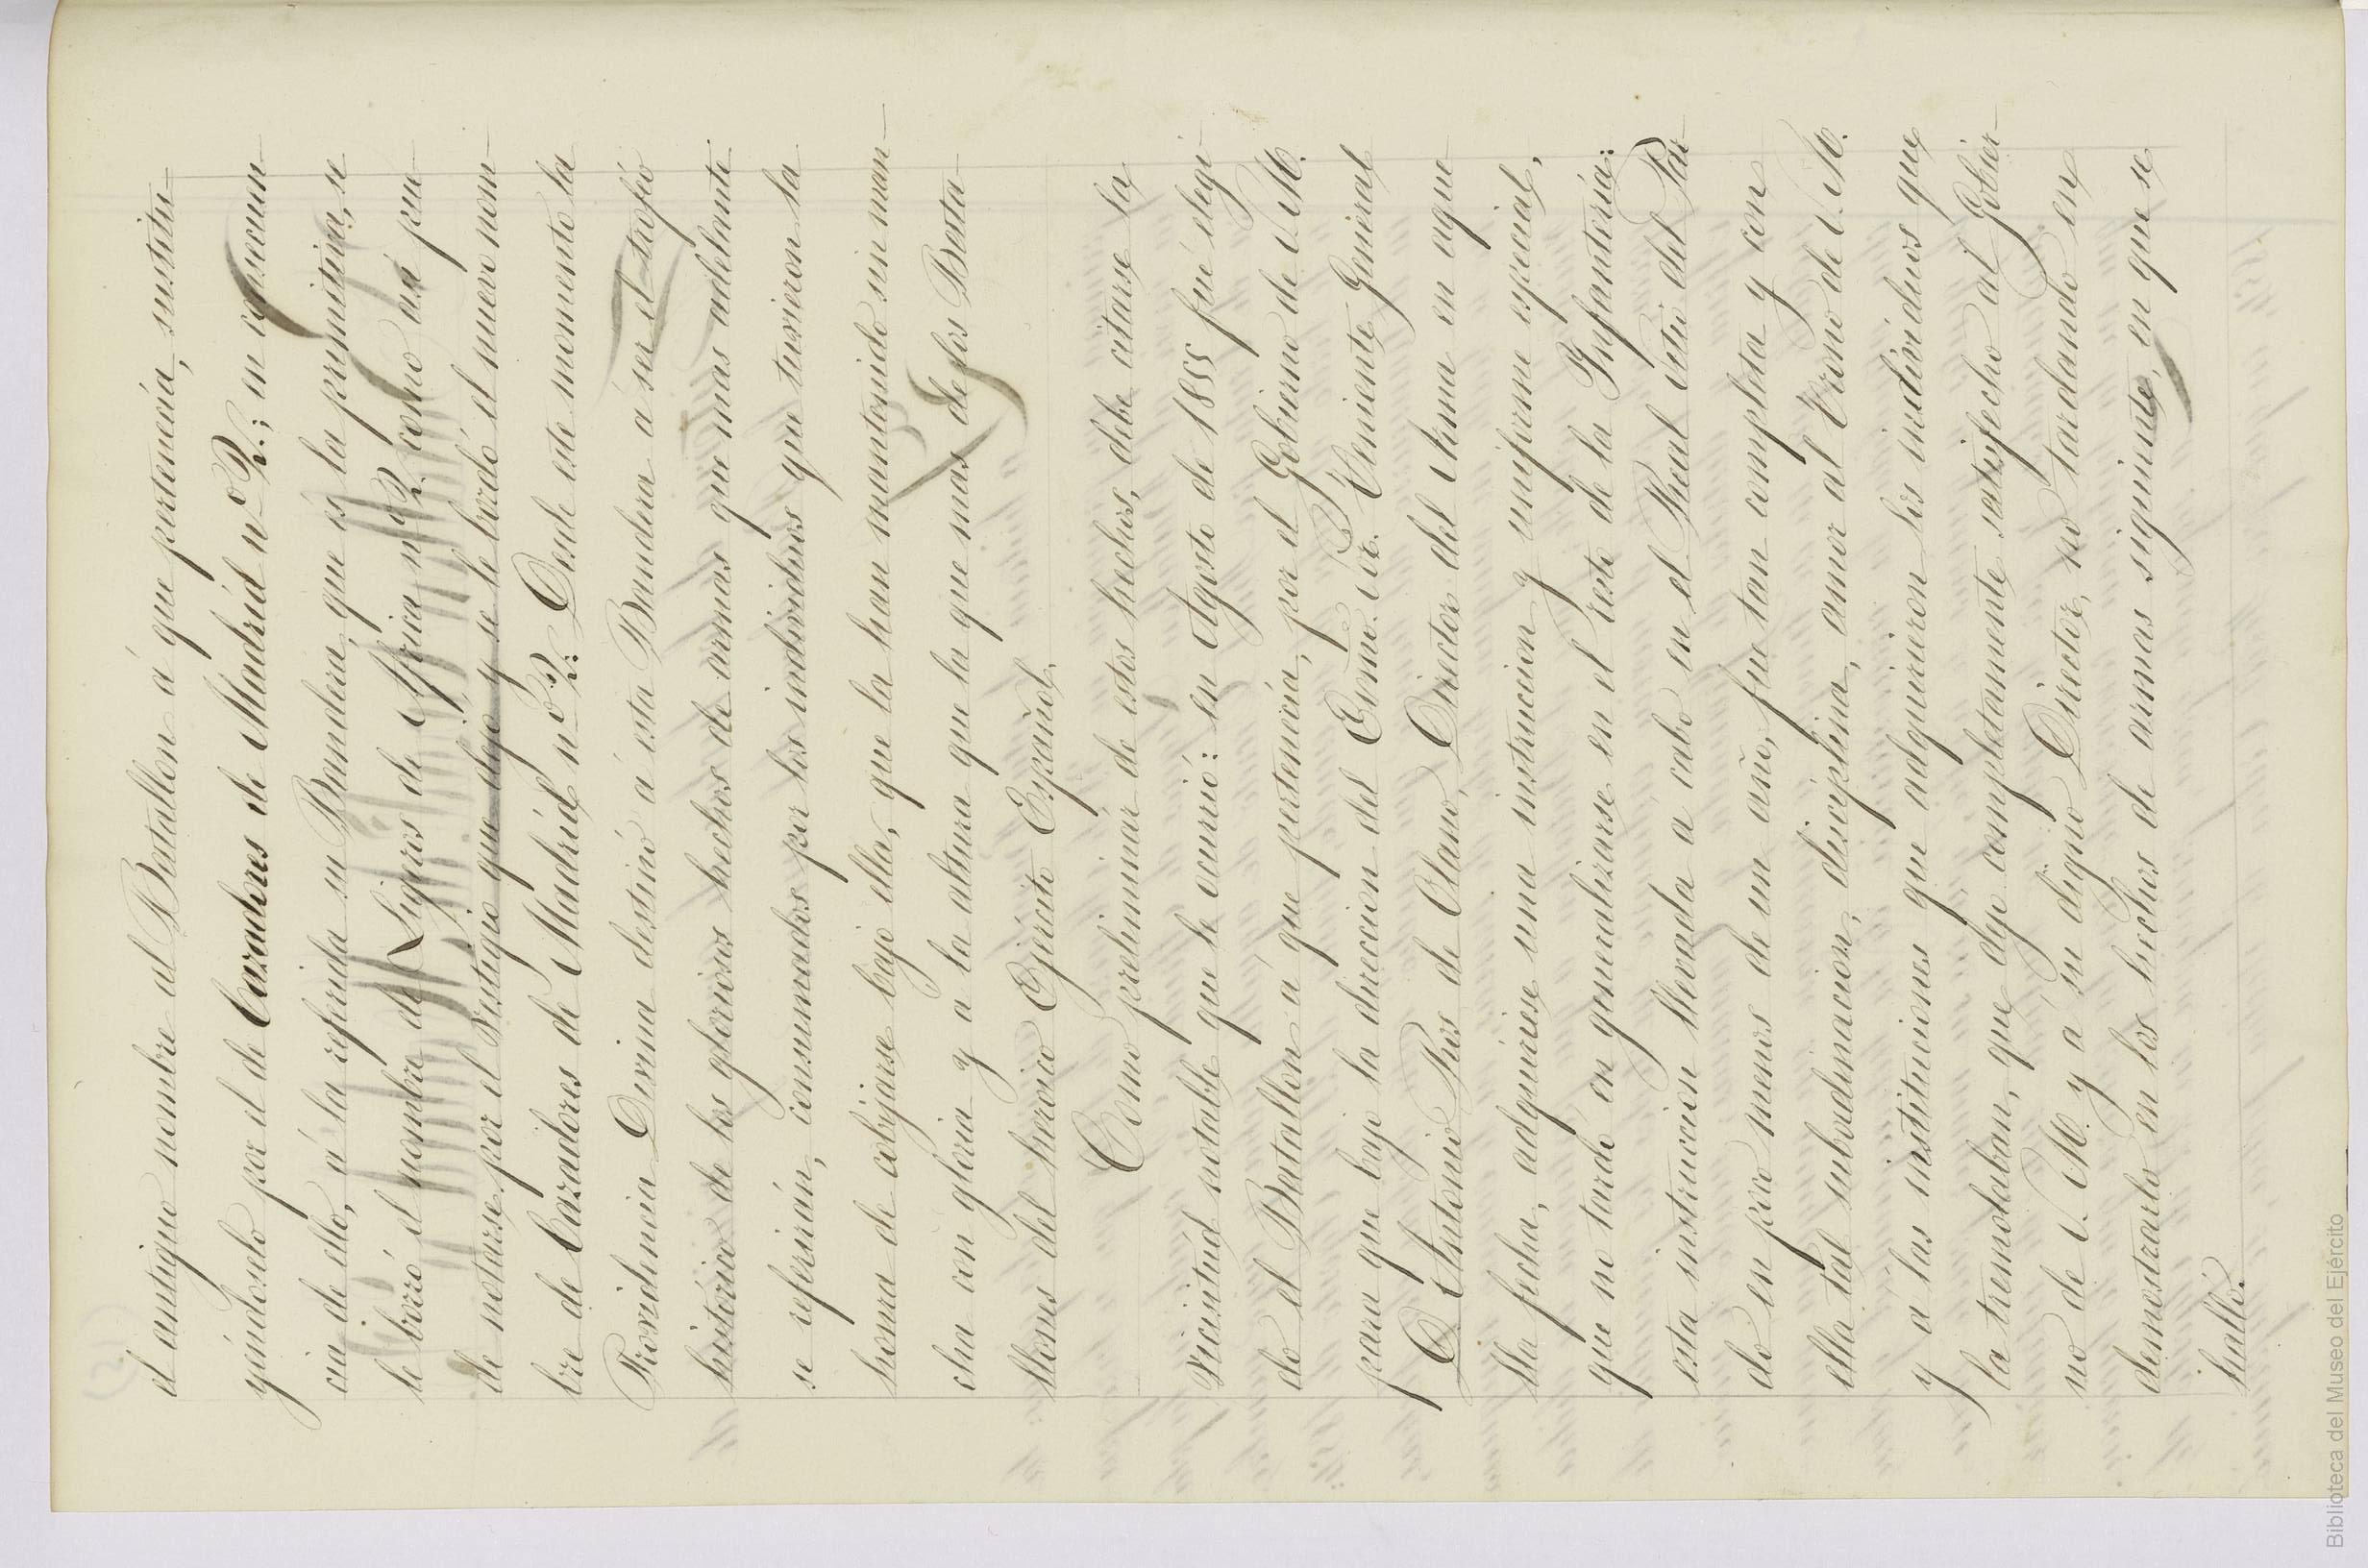 el antiguo nombre al Batallon á que pertenecía, sustitu-
yéndoselo por el de Cazadores de Madrid nº 2.; en consecuen-
cia de ello, á la referida su Bandera, que es la primitiva, se
le borró el nombre de Ligeros de Africa nº 2. como asi pue-
de notarse, por el vestigio que dejó y se le bordó el nuevo nom-
bre de Cazadores de Madrid nº 2: Desde este momento la
Providencia Divina destinó á esta Bandera á ser el trofeo
histórico de los gloriosos hechos de armas que mas adelante
se referirán, consumados por los individuos que tuvieron la
honra de cobijarse bajo ella, que la han mantenido sin man-
cha con gloria y a la altura que la que mas de los Bata-
llones del heroico Ejército Español.
Como preliminar de estos hechos, debe citarse la
vicisitud notable que le ocurrió: en Agosto de 1855 fué elegi-
do el Batallon á que pertenecía, por el Gobierno de S. M.
para que bajo la direccion del Exmo. Sor. Teniente General
D. Antonio Ros de Olano, Director del Arma en aque-
lla fecha, adquiriese una instruccion y uniforme especial,
que no tardó en generalizarse en el resto de la Infantería:
esta instruccion llevada á cabo en el Real Sitio del Par-
do en poco menos de un año, fue tan completa y con
ella tal subordinacion, disciplina, amor al Trono de S. M.
y a las instituciones que adquirieron los individuos que
la tremolaban, que dejó completamente satisfecho al Gobier-
no de S. M. y á su digno Director, no tardando en
demostrarlo en los hechos de armas siguientes, en que se
halló.
Biblioteca del Museo del Ejército